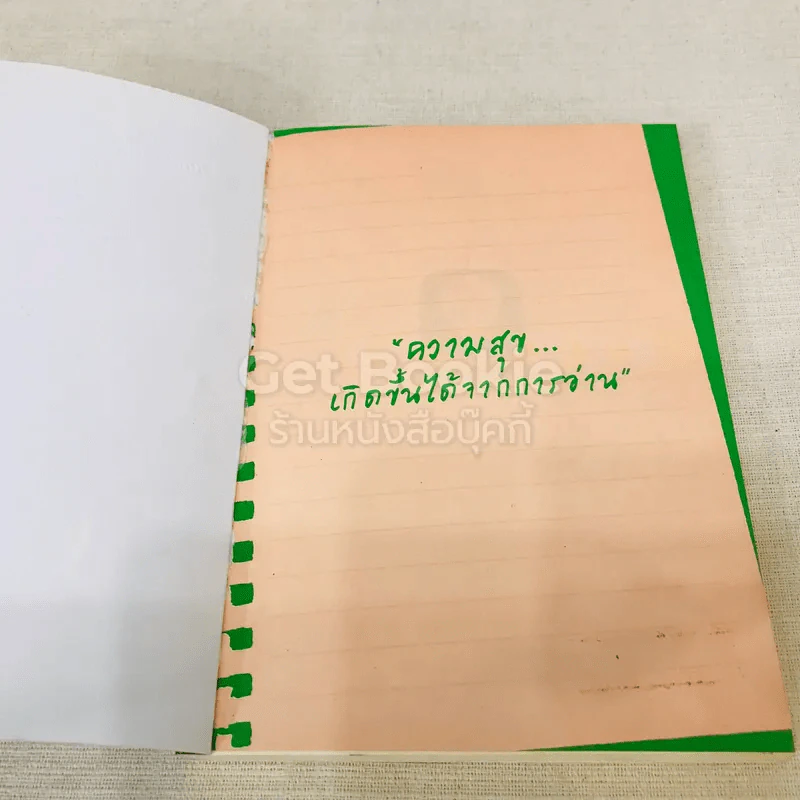 "ความสุข...
เกิดขึ้นได้จากการอ่าน"
Get Bookie
ร้านหนังสือบุ๊คกี้